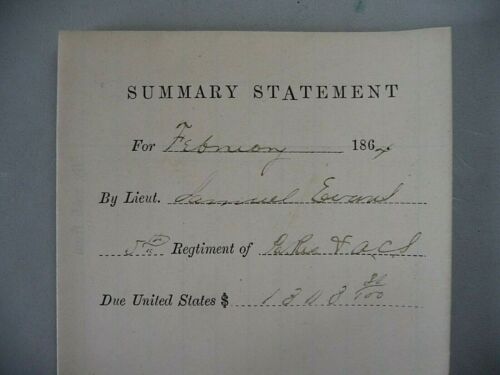 SUMMARY STATEMENT
For February 1864
By Lieut. Samuel Evans
5th Regtiment of & A C S
Due United States $